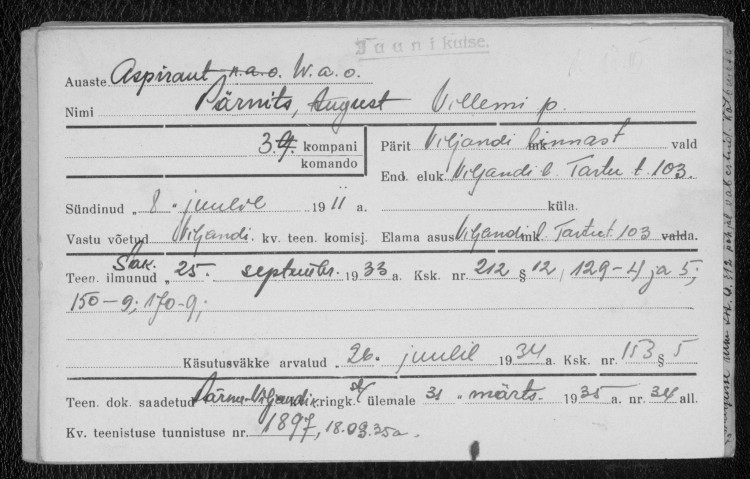 Taunikutse.
Auaste Aspirant n.a.o. W.a.o.
Nimi Pärnits, August Villemi p.
3. 9. kompani
komando
Pärit Viljandi linnast mk. vald
End. eluk. Viljandi l. Tartu t. 103.
küla.
Sündinud „ 8 „ juulil 1911 a.
Vastu võetud Viljandi. kv. teen. komisj.
Elama asus Viljandi l. mk. Tartu t. 103 valda.
Teen. ilmunud Sak. „ 25. septembr. 1933 a. Ksk. nr. 212 § 12, 129-4 ja 5;
150-9; 170-9;
Käsutusväkke arvatud „ 26. juulil 1934 a. Ksk. nr. 153 § 5
Teen. dok. saadetud Pärnu-Viljandi kringk. ülemale 31 „ märts. 1935 a. nr. 34 all.
Kv. teenistuse tunnistuse nr. 1897, 18.03.35a.